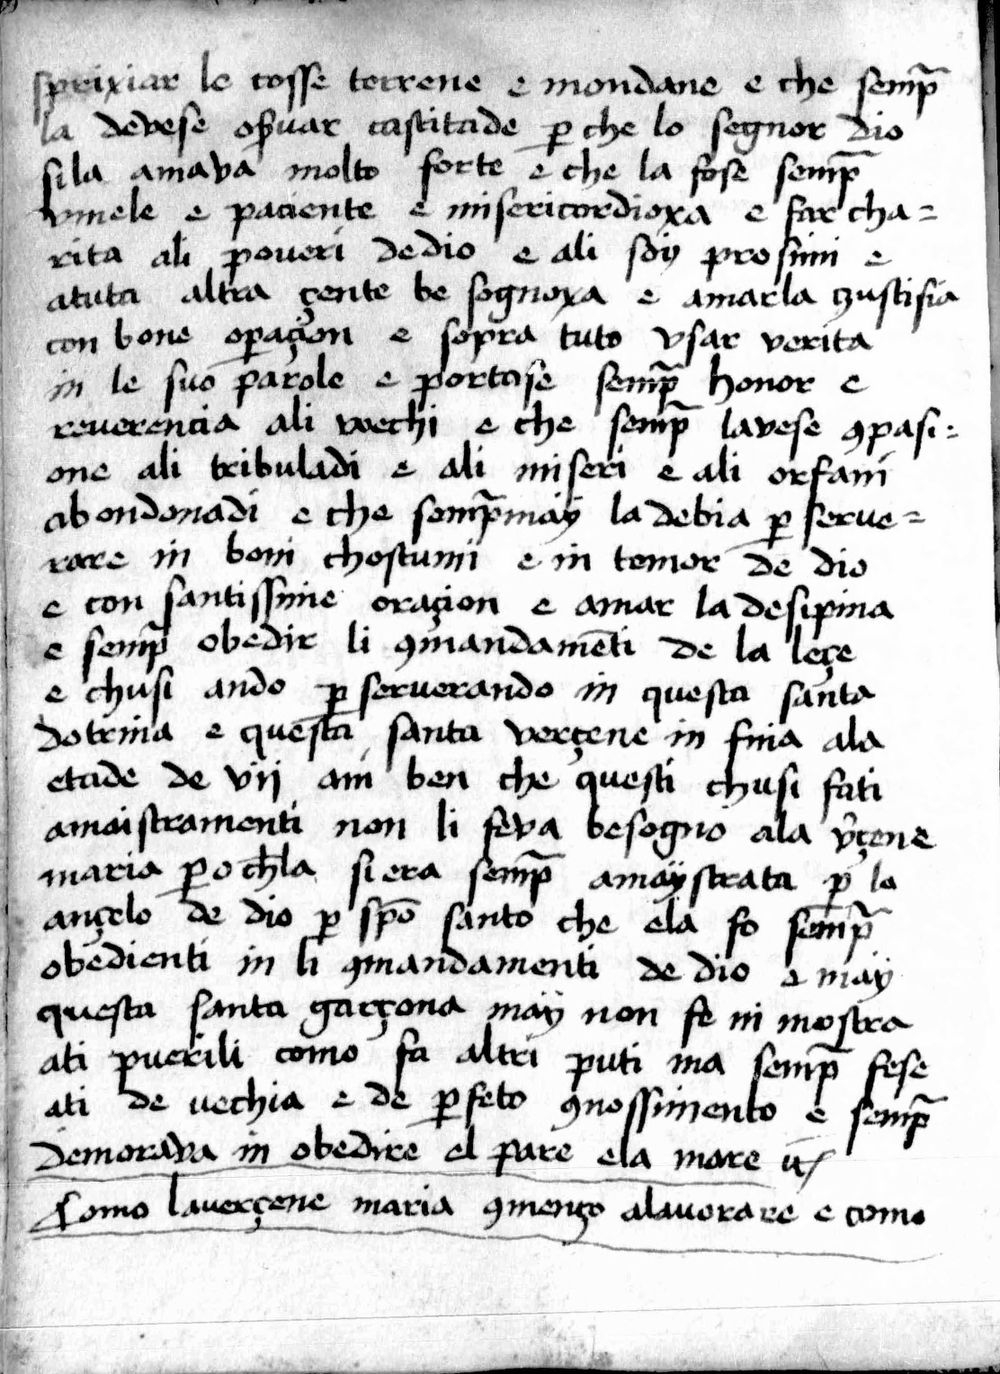 sprixiar le cosse terrene e mondane e che semp̄
la devese oꝑsvar castitade ꝑ che lo segnor dio
sila amava molto forte e che la fose semp̄
vmele e paciente e misericordioxa e far cha=
rita ali poveri dedio e ali soy prosimi e
atuta altra çente be sognoxa e amarla zustisia
con bone oꝑaçion e sopra tuto vsar verita
in le suo parole e portase semp̄ honor e
reverencia ali vechi e che semp̄ lavese ꝯpasi=
one ali tribuladi e ali miseri e ali orfani
abondonadi e che semp̄may ladebia ꝑ serve=
rare in boni chostumi e in temor de dio
e con santissime oraçion e amar ladesipina
e semp̄ obedir li ꝯmandamēti de la leçe
e chusi ando ꝑ serverando in questa santa
dotrina e questa santa verçene in fina ala
etade de vii ani ben che questi chusi fati
amaistramenti non li feva besogno ala v̄çene
maria ꝑo ch̄la si era semp̄ amaystrata ꝑ lo
ançelo de dio ꝑ sp̄o santo che ela fo semp̄
obedienti in li ꝯmandamenti de dio e may
questa santa garçona may non fe ni mostra
ati puerili como fa altri puti ma semp̄ fese
ati de vechia e de ꝑfeto ꝯnossimento e semp̄
demorava in obedire el pare ela mare
Como laverçene maria ꝯmenço alavorare e como